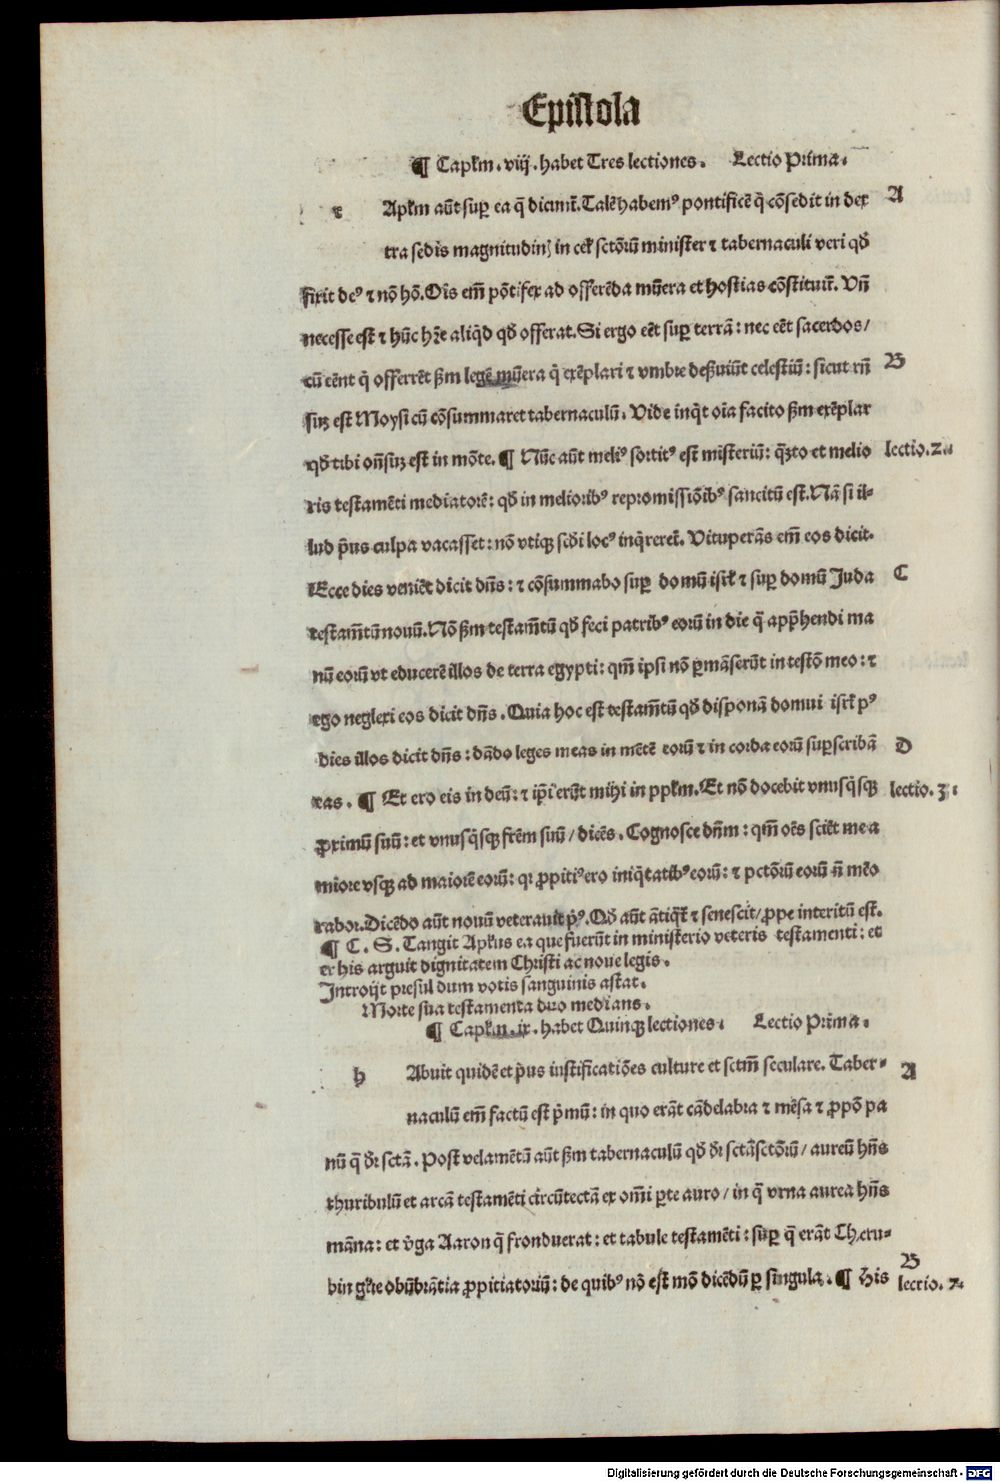 Epistola
¶ Capłm. viij. habet Tres lectiones. Lectio Prima.
c Apłm aūt sup ea q̄ dicunt̄. Talē habemꝰ pontificē q̄ cōsedit in dex A
tra sedis magnitudinꝭ in cel̄ sctōrū minister ⁊ tabernaculi veri qd̄
fixit deꝰ ⁊ nō hō. Oīs em̄ pōtifex ad offerēda mūera et hostias cōstituit̄. Vn̄
necesse est ⁊ hūc hr̄e aliq̄d qd̄ offerat. Si ergo eēt suꝑ terrā: nec eēt sacerdos/
cū eēnt q̄ offerrēt ẜm legē mūera q̄ exēplari ⁊ vmbre deẜuiūt celestiū: sicut rn̄ B
sūꝫ est Moysi cū cōsummaret tabernaculū. Vide inq̄t oīa facito ẜm exēplar
qd̄ tibi on̄sūꝫ est in mōte. ¶ Nūc aūt meliꝰ sortitꝰ est misteriū: q̄ꝫto et melio lectio. 2a.
ris testamēti mediatorē: qd̄ in melioribꝰ repromissiōibꝰ sancitū est. Nā si il⸗
lud p̄us culpa vacasset: nō vtiqꝫ scd̄i locꝰ inq̄reret̄. Vituperās em̄ eos dicit.
Ecce dies veniēt dicit dn̄s: ⁊ cōsummabo suꝑ domū isrł ⁊ suꝑ domū Juda C
testam̄tū nouū. Nō ẜm testam̄tū qd̄ feci patribꝰ eorū in die q̄ app̄hendi ma
nū eorū vt educerē illos de terra egypti: qm̄ ipsi nō ꝑmāserūt in testō meo: ⁊
ego neglexi eos dicit dn̄s. Quia hoc est testam̄tū qd̄ disponā domui isrł pꝰ
dies illos dicit dn̄s: dādo leges meas in mētē eorū ⁊ in corda eorū suꝑscribā D
eas. ¶ Et ero eis in deū: ⁊ ip̄i erūt mihi in ppłm. Et nō docebit vnusq̄sqꝫ lectio. 3.
ꝓximū suū: et vnusq̄sqꝫ frēm suū/ dicēs. Cognosce dn̄m: qm̄ oēs sciēt me a
miore vsqꝫ ad maiorē eorū: qꝛ ꝓpitiꝰ ero iniq̄tatibꝰ eorū: ⁊ pctōrū eorū n̄ mēo
rabor. Dicēdo aūt nouū veterauit p̄ꝰ. Qd̄ aūt ātiq̄t̄ ⁊ senescit/ ꝓpe interitū est.
¶ C. S. Tangit Apłus ea que fuerūt in ministerio veteris testamenti: et
er his arguit dignitatem Christi ac noue legis.
Introijt presul dum votis sanguinis astat.
Morte sua testamenta duo medians.
¶ Capłm. ix. habet Quinqꝫ lectiones. Lectio Prima.
h Abuit quidē et p̄us iustificatiōes culture et sctm̄ seculare. Taber⸗ A
naculū em̄ factū est p̄mū: in quo erāt cādelabra ⁊ mēsa ⁊ ꝓpō pa
nū q̄ dr̄ sctā. Post velamētū aūt ẜm tabernaculū qd̄ dr̄ sctāsctōrū/ aureū hn̄s
thuribulū et arcā testamēti circūtectā ex om̄i ꝑte auro/ in q̄ vrna aurea hn̄s
māna: et v̄ga Aaron q̄ fronduerat: et tabule testamēti: suꝑ q̄ erāt Cheru⸗
bin gl̄ie obūbrātia ꝓpitiatoriū: de quibꝰ nō est mō dicēdū ꝑ singula. ¶ His B
lectio. 2.
Digitalisierung gefördert durch die Deutsche Forschungsgemeinschaft - DFG